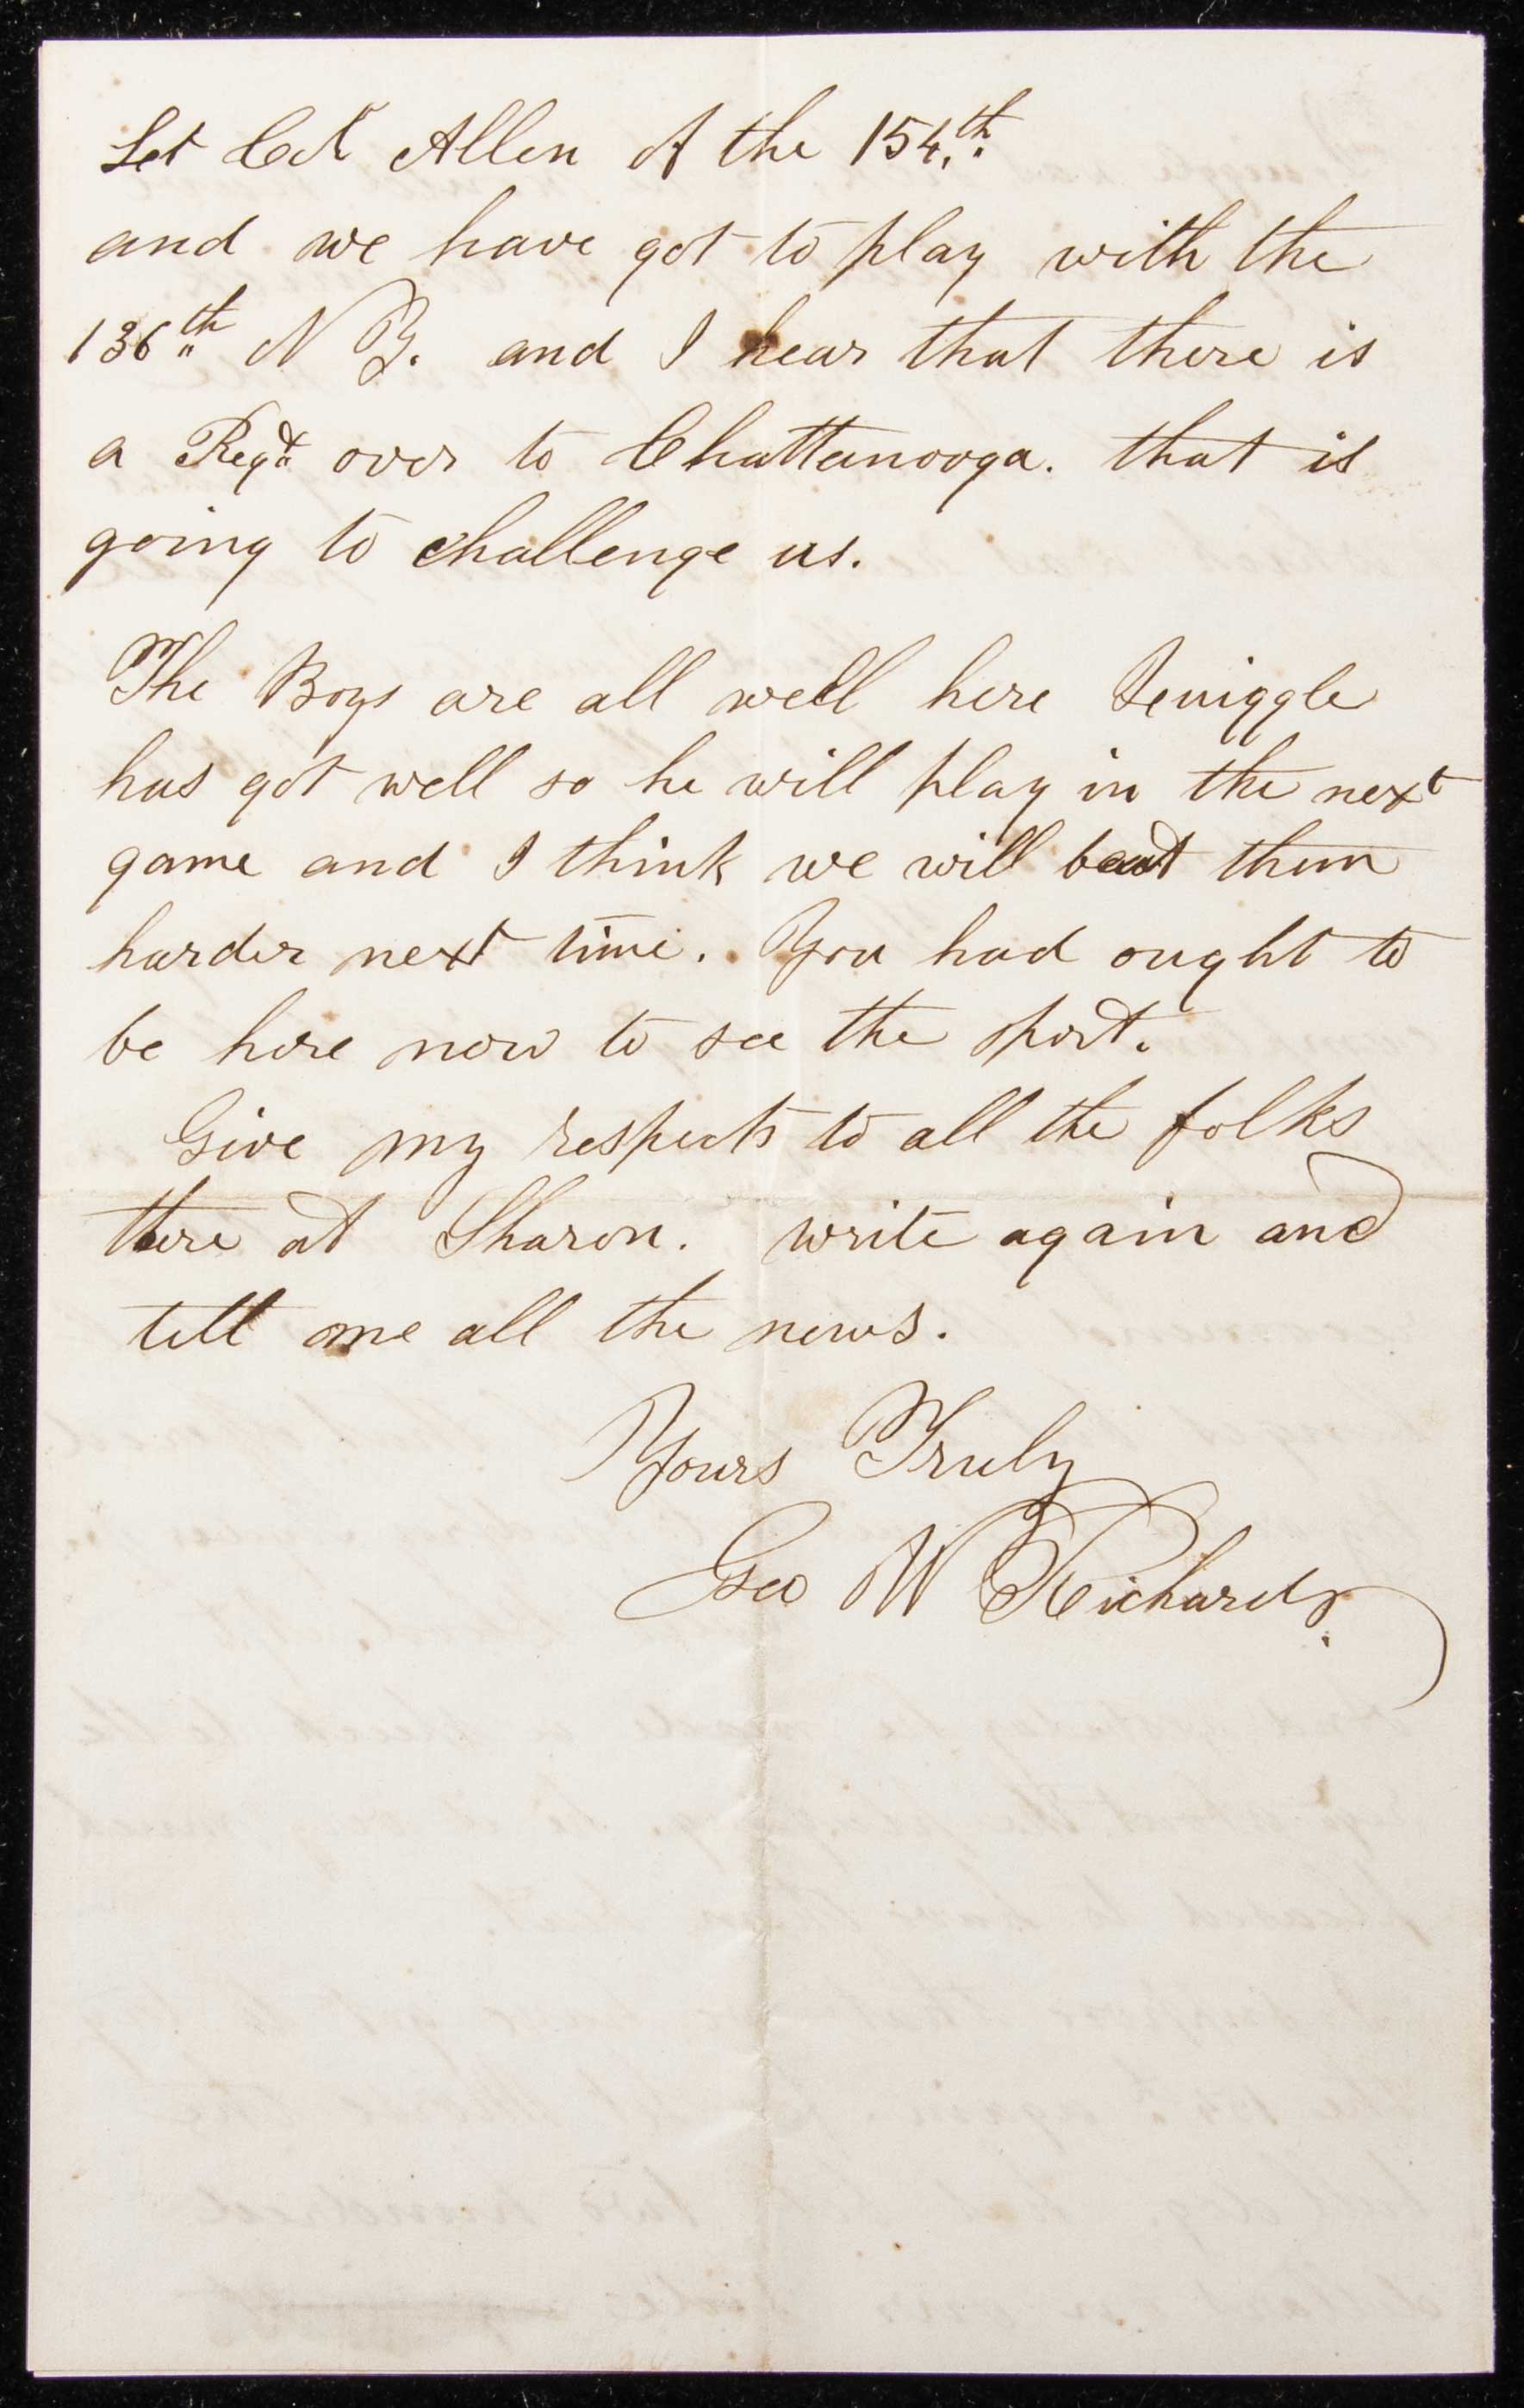 Let Col Allen of the 154.th
and we have got to play with the
136th N Y. and I hear that there is
a Regt over to Chattanooga. that is
going to challenge us.
The Boys are all well here
has got well so he will play in the next
game and I think we will beat them
harder next time. You had ought to
be here now to see the sport.
Give my respects to all the folks
there at Sharon. write again and
tell me all the news.
Yours Truly
Geo W Richards.